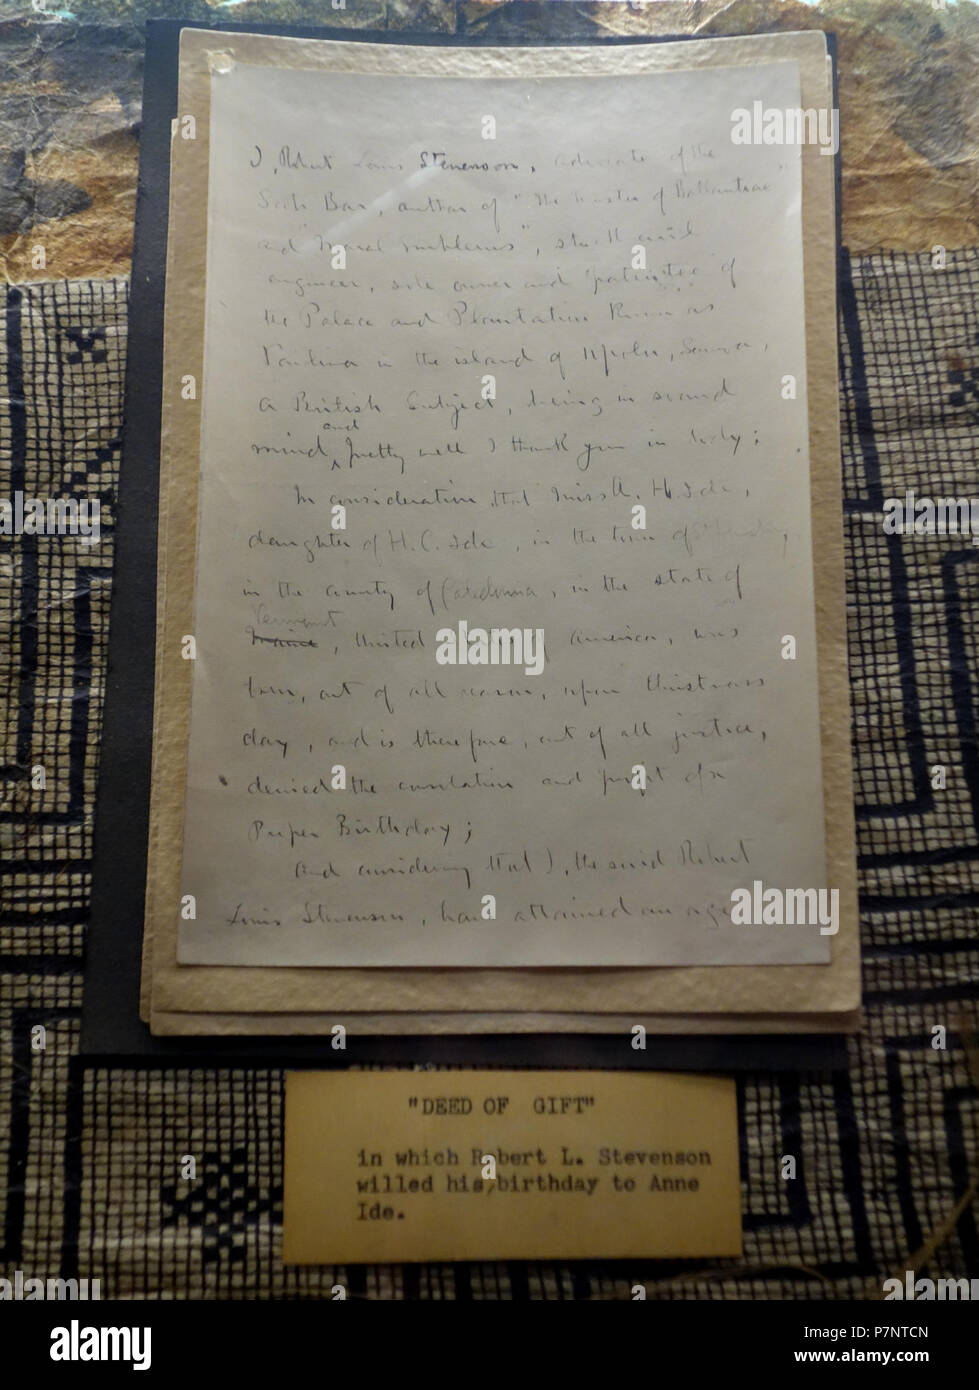 I, Robert Louis Stevenson, advocate of the
Scots Bar, author of "The Master of Ballantrae"
and "Moral Emblems", stuck civil
engineer, sole owner and patentee of
the Palace and Plantation known as
Vailima in the island of Upolu, Samoa,
a British Subject, being in sound
mind, and pretty well I thank you in body;
In consideration that Miss A. H. Ide,
daughter of H. C. Ide, in the town of
in the county of Caledonia, in the state of
Vermont
Maine, United States of America, was
born, out of all reason, upon Christmas
day, and is therefore, out of all justice,
denied the consolation and profit of a
Proper Birthday;
And considering that I, the said Robert
Louis Stevenson, have attained an age
"DEED OF GIFT"
in which Robert L. Stevenson
willed his birthday to Anne
Ide.
alamy
alamy stock photo
P7NTCN
www.alamy.com